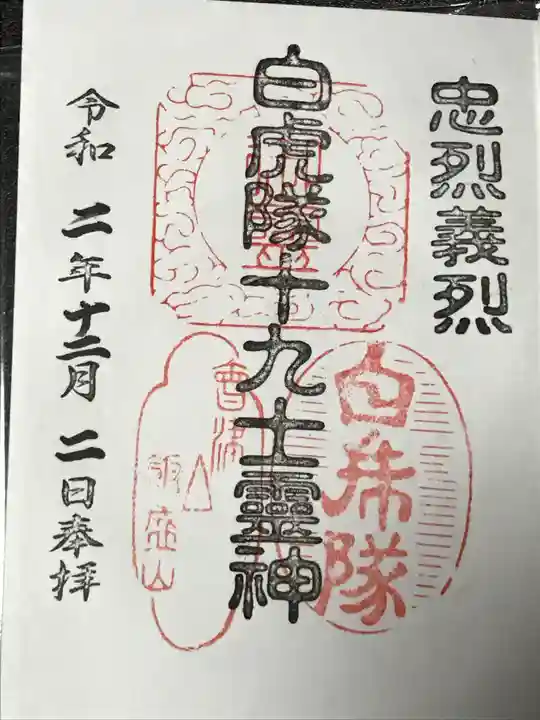 忠烈義烈
白虎隊十九士靈神
白虎隊
會津
飯盛山
令和二年十二月二日奉拝